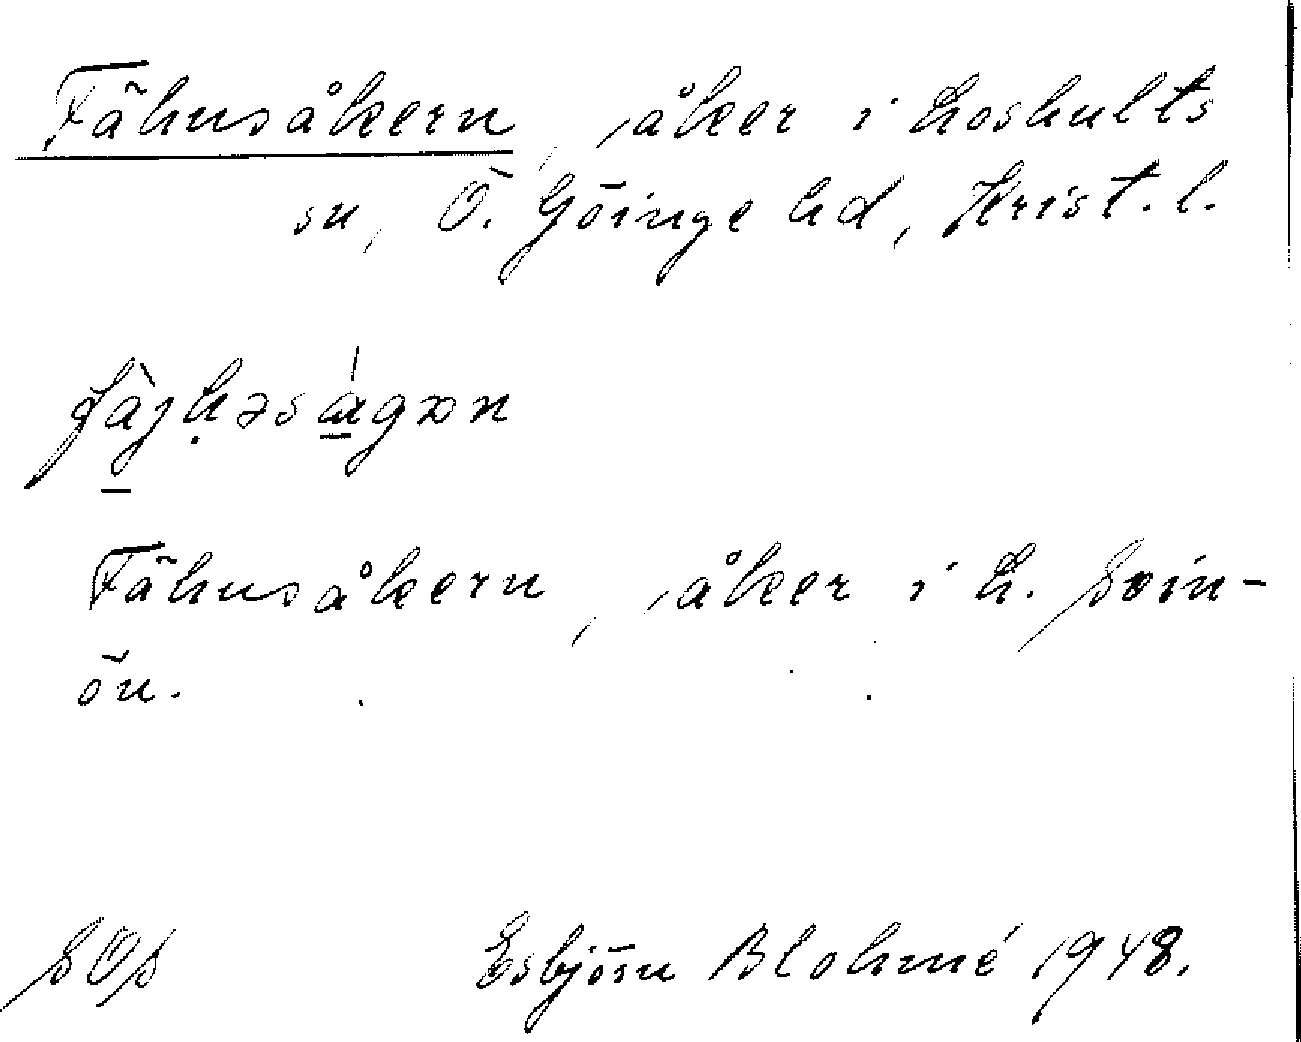 Fähusåkern, åker i Loshults
sn, Ö. Göinge hd, Krist. l.
fàjhəságɷn
Fähusåkern, åker i L. Svin-
ön.
SOS Esbjörn Blohmé 1948.